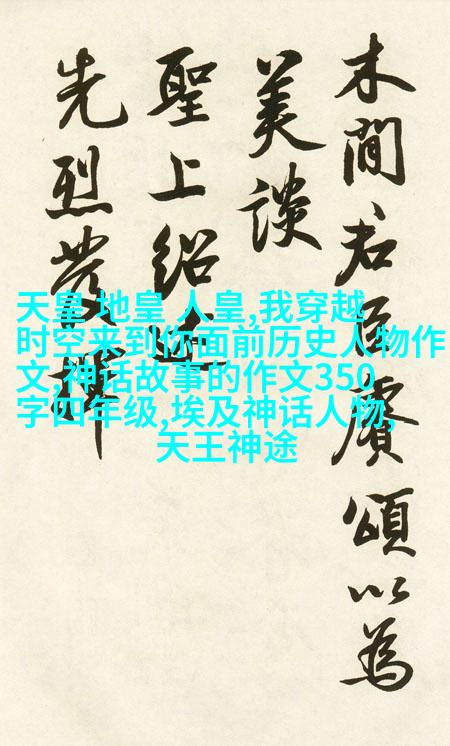 木間君臣賡頌以為
美談
聖上紹述
先烈發揮
天皇 地皇 人皇,我穿越
时空来到你面前历史人物作
文,神话故事的作文350
字四年级,埃及神话人物,
天王神途